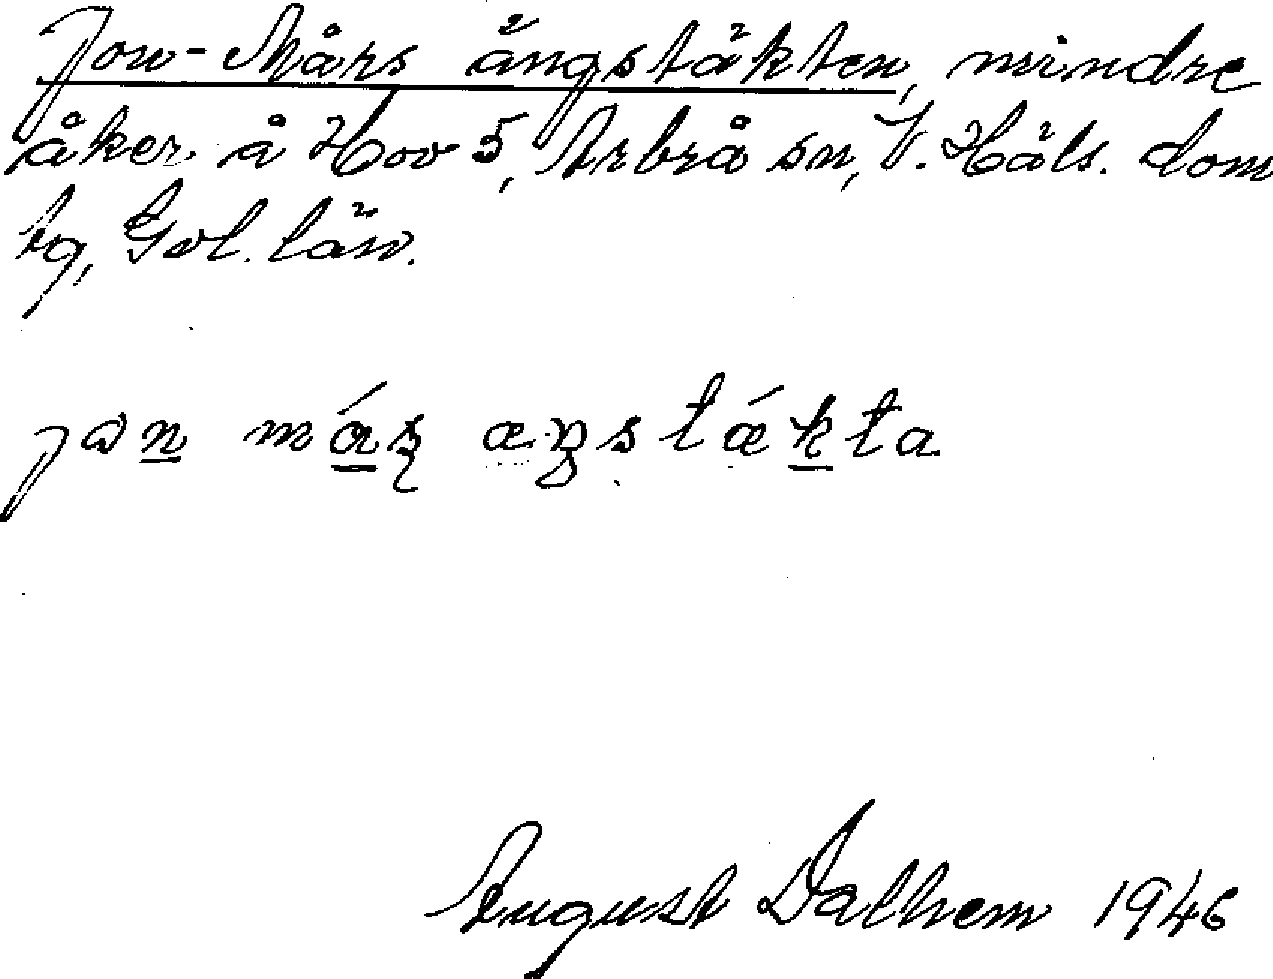 Jon-Mårs ängstäkten, mindre
åker å Hov 5, Arbrå sn, V. Häls. dom
sg, Gvl. län.
jan más æŋstǽkta
August Dalhem 1946